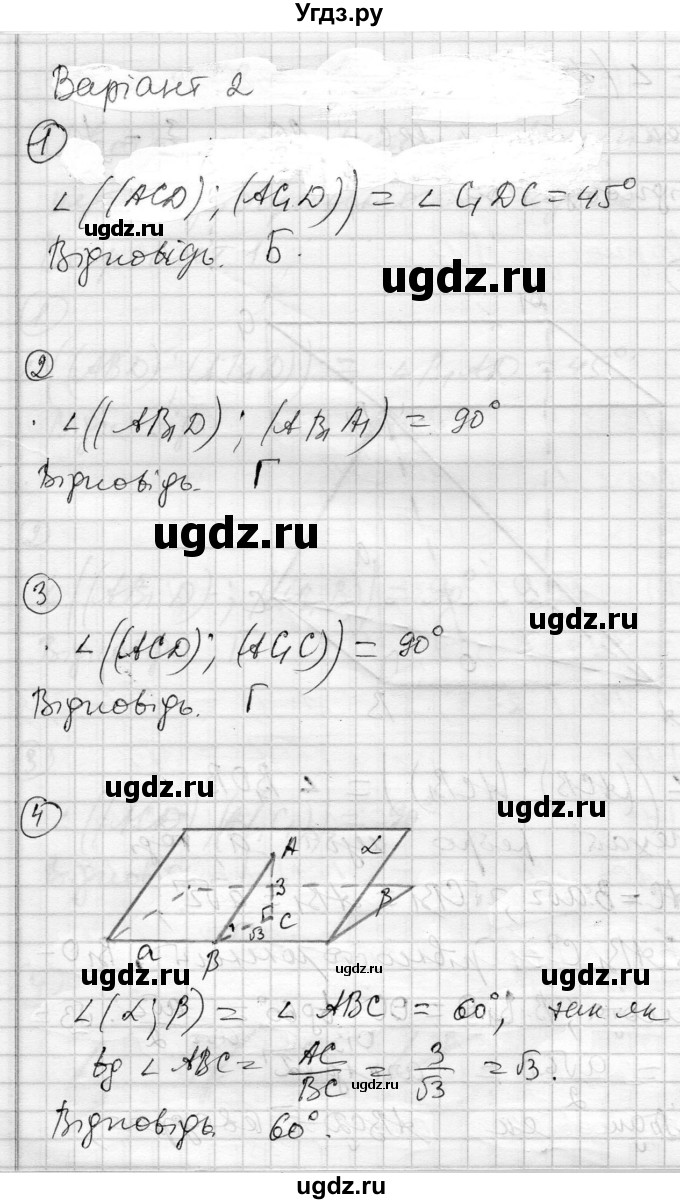 Угдз.ру
Варіант 2
1
∠((ACD); (AC₁D)) = ∠C₁DC = 45°
Відповідь. Б.
ugdz.ru
2
∠((AB₁D); (AB₁A₁) = 90°
Відповідь. Г
ugdz.ru
3
ugdz.ru
∠((ACD); (AC₁C)) = 90°
Відповідь. Г
ugdz.ru
ugdz.ru
4
A
α
3
β
C
√3
a
B
ugdz.ru
ugdz.ru
ugdz.ru
∠(α; β) = ∠ABC = 60°, так як
tg∠ABC = AC/BC = 3/√3 = √3.
ugdz.ru
Відповідь 60°.
ugdz.ru